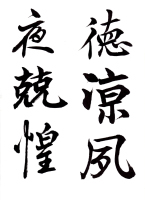 徳凉夙
夜兢惶